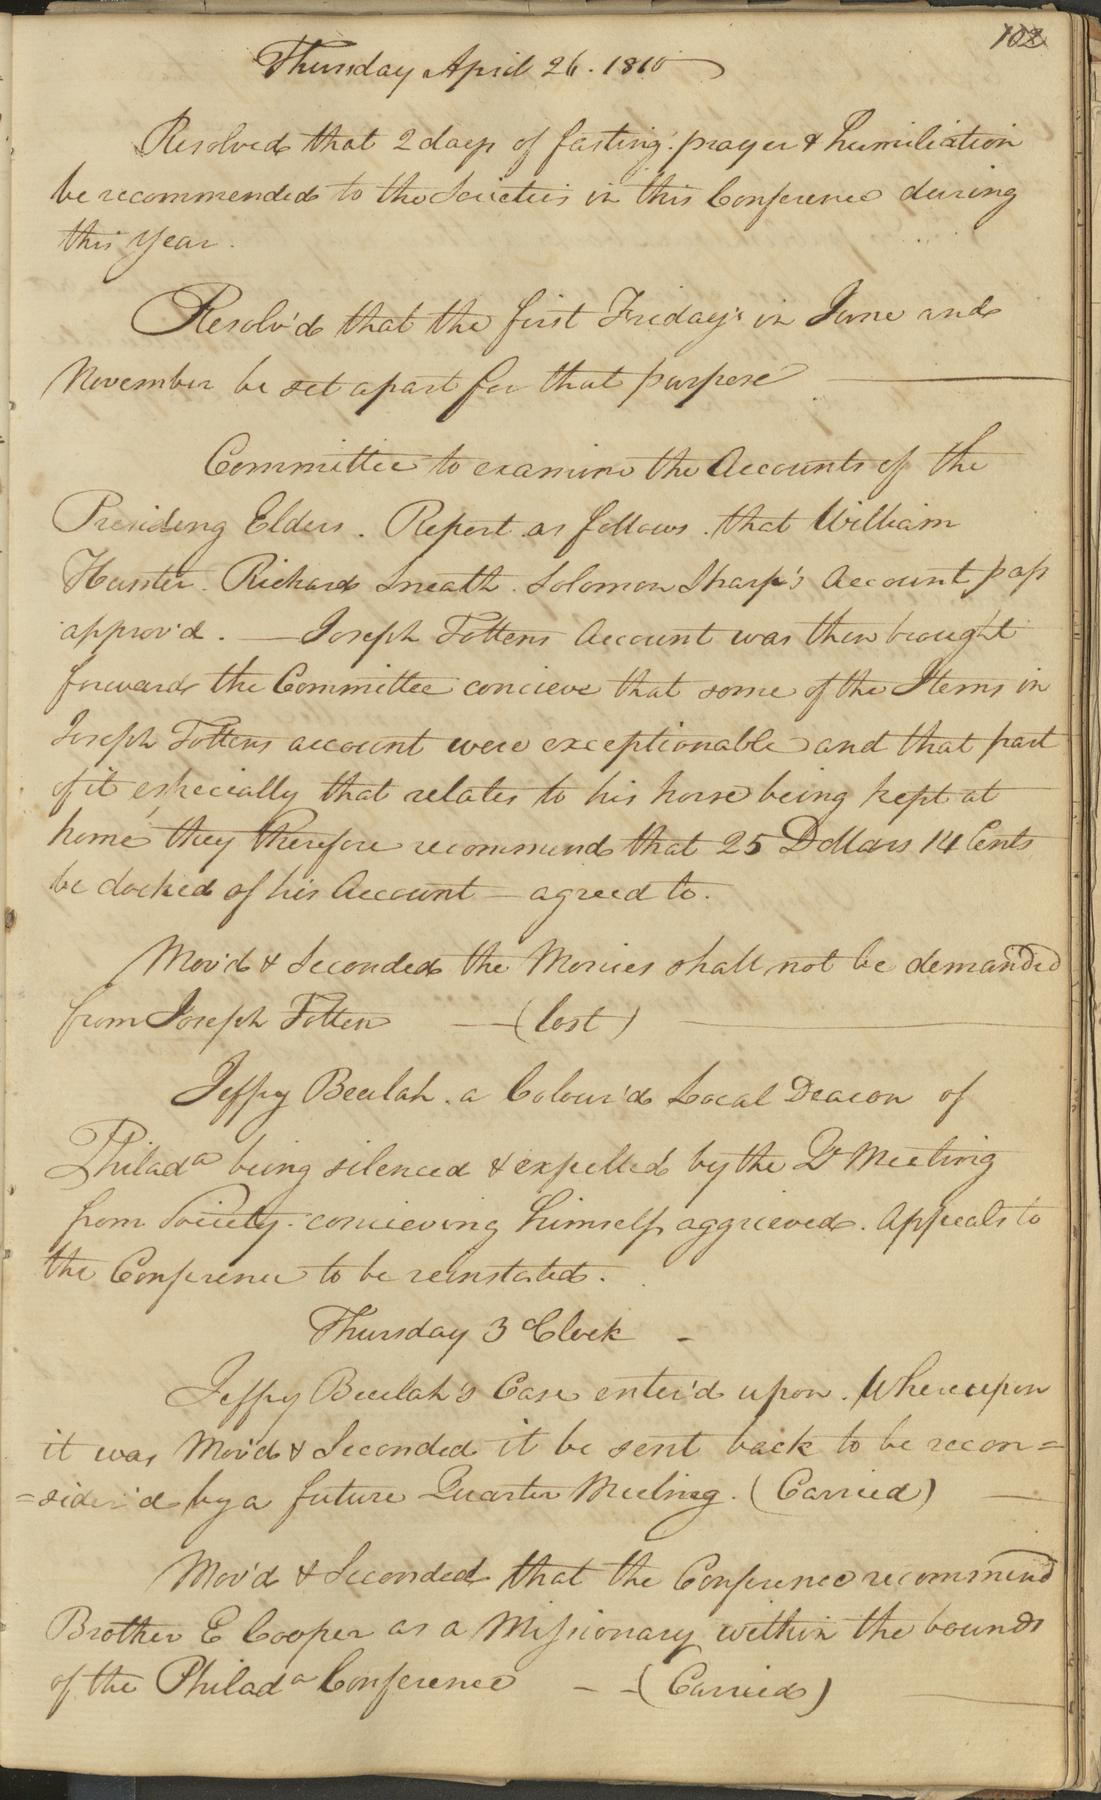 102
Thursday April 26. 1810
Resolved that 2 days of fasting. prayer & humiliation
be recommended to the Societies in this Conference during
this Year.
Resolv'd that the first Fridays in June and
November be set apart for that purpose
Committee to examine the Accounts of the
Presiding Elders. Report as follows. that William
Hunter. Richard Sneath. Solomon Sharp's Account pass
approv'd. — Joseph Tottens Account was then brought
forward the Committee concieve that some of the Items in
Joseph Tottens account were exceptionable and that part
of it especially that relates to his horse being kept at
home they therefore recommend that 25 Dollars 14 Cents
be docked of his Account — agreed to.
Mov'd & Seconded the Monies shall not be demanded
from Joseph Totten — (lost)
Jeffry Beulah. a Colour'd Local Deacon of
Philada being silenced & expelled by the Qr Meeting
from Society. concieving himself aggrieved. Appeals to
the Conference to be reinstated.
Thursday 3 oClock -
Jeffry Beulah's Case enter'd upon. Whereupon
it was Mov'd & Seconded it be sent back to be recon=
=sider'd by a future Quarter Meeting. (Carried) —
Mov'd & Seconded that the Conference recommend
Brother E Cooper as a Missionary within the bounds
of the Philada Conference - - (Carried)